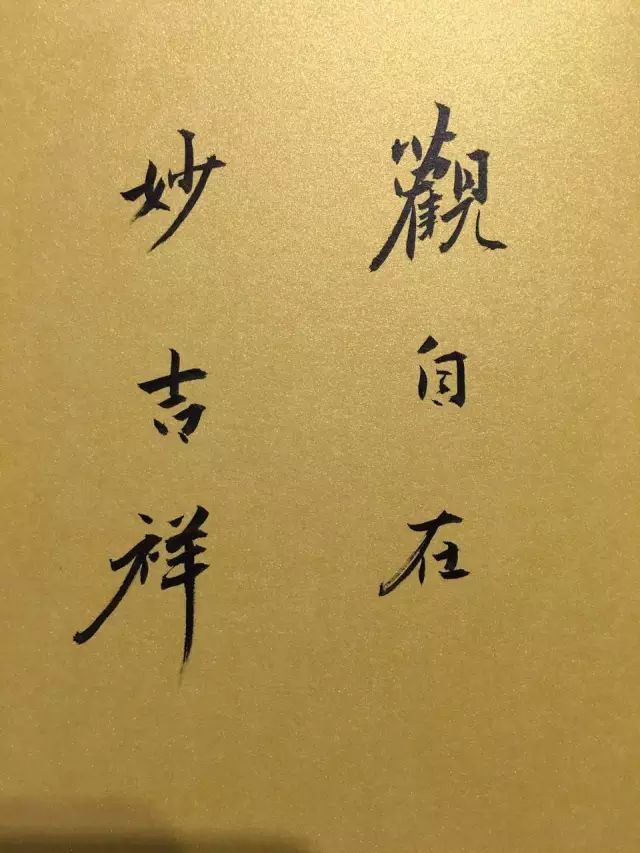 觀自在
妙吉祥